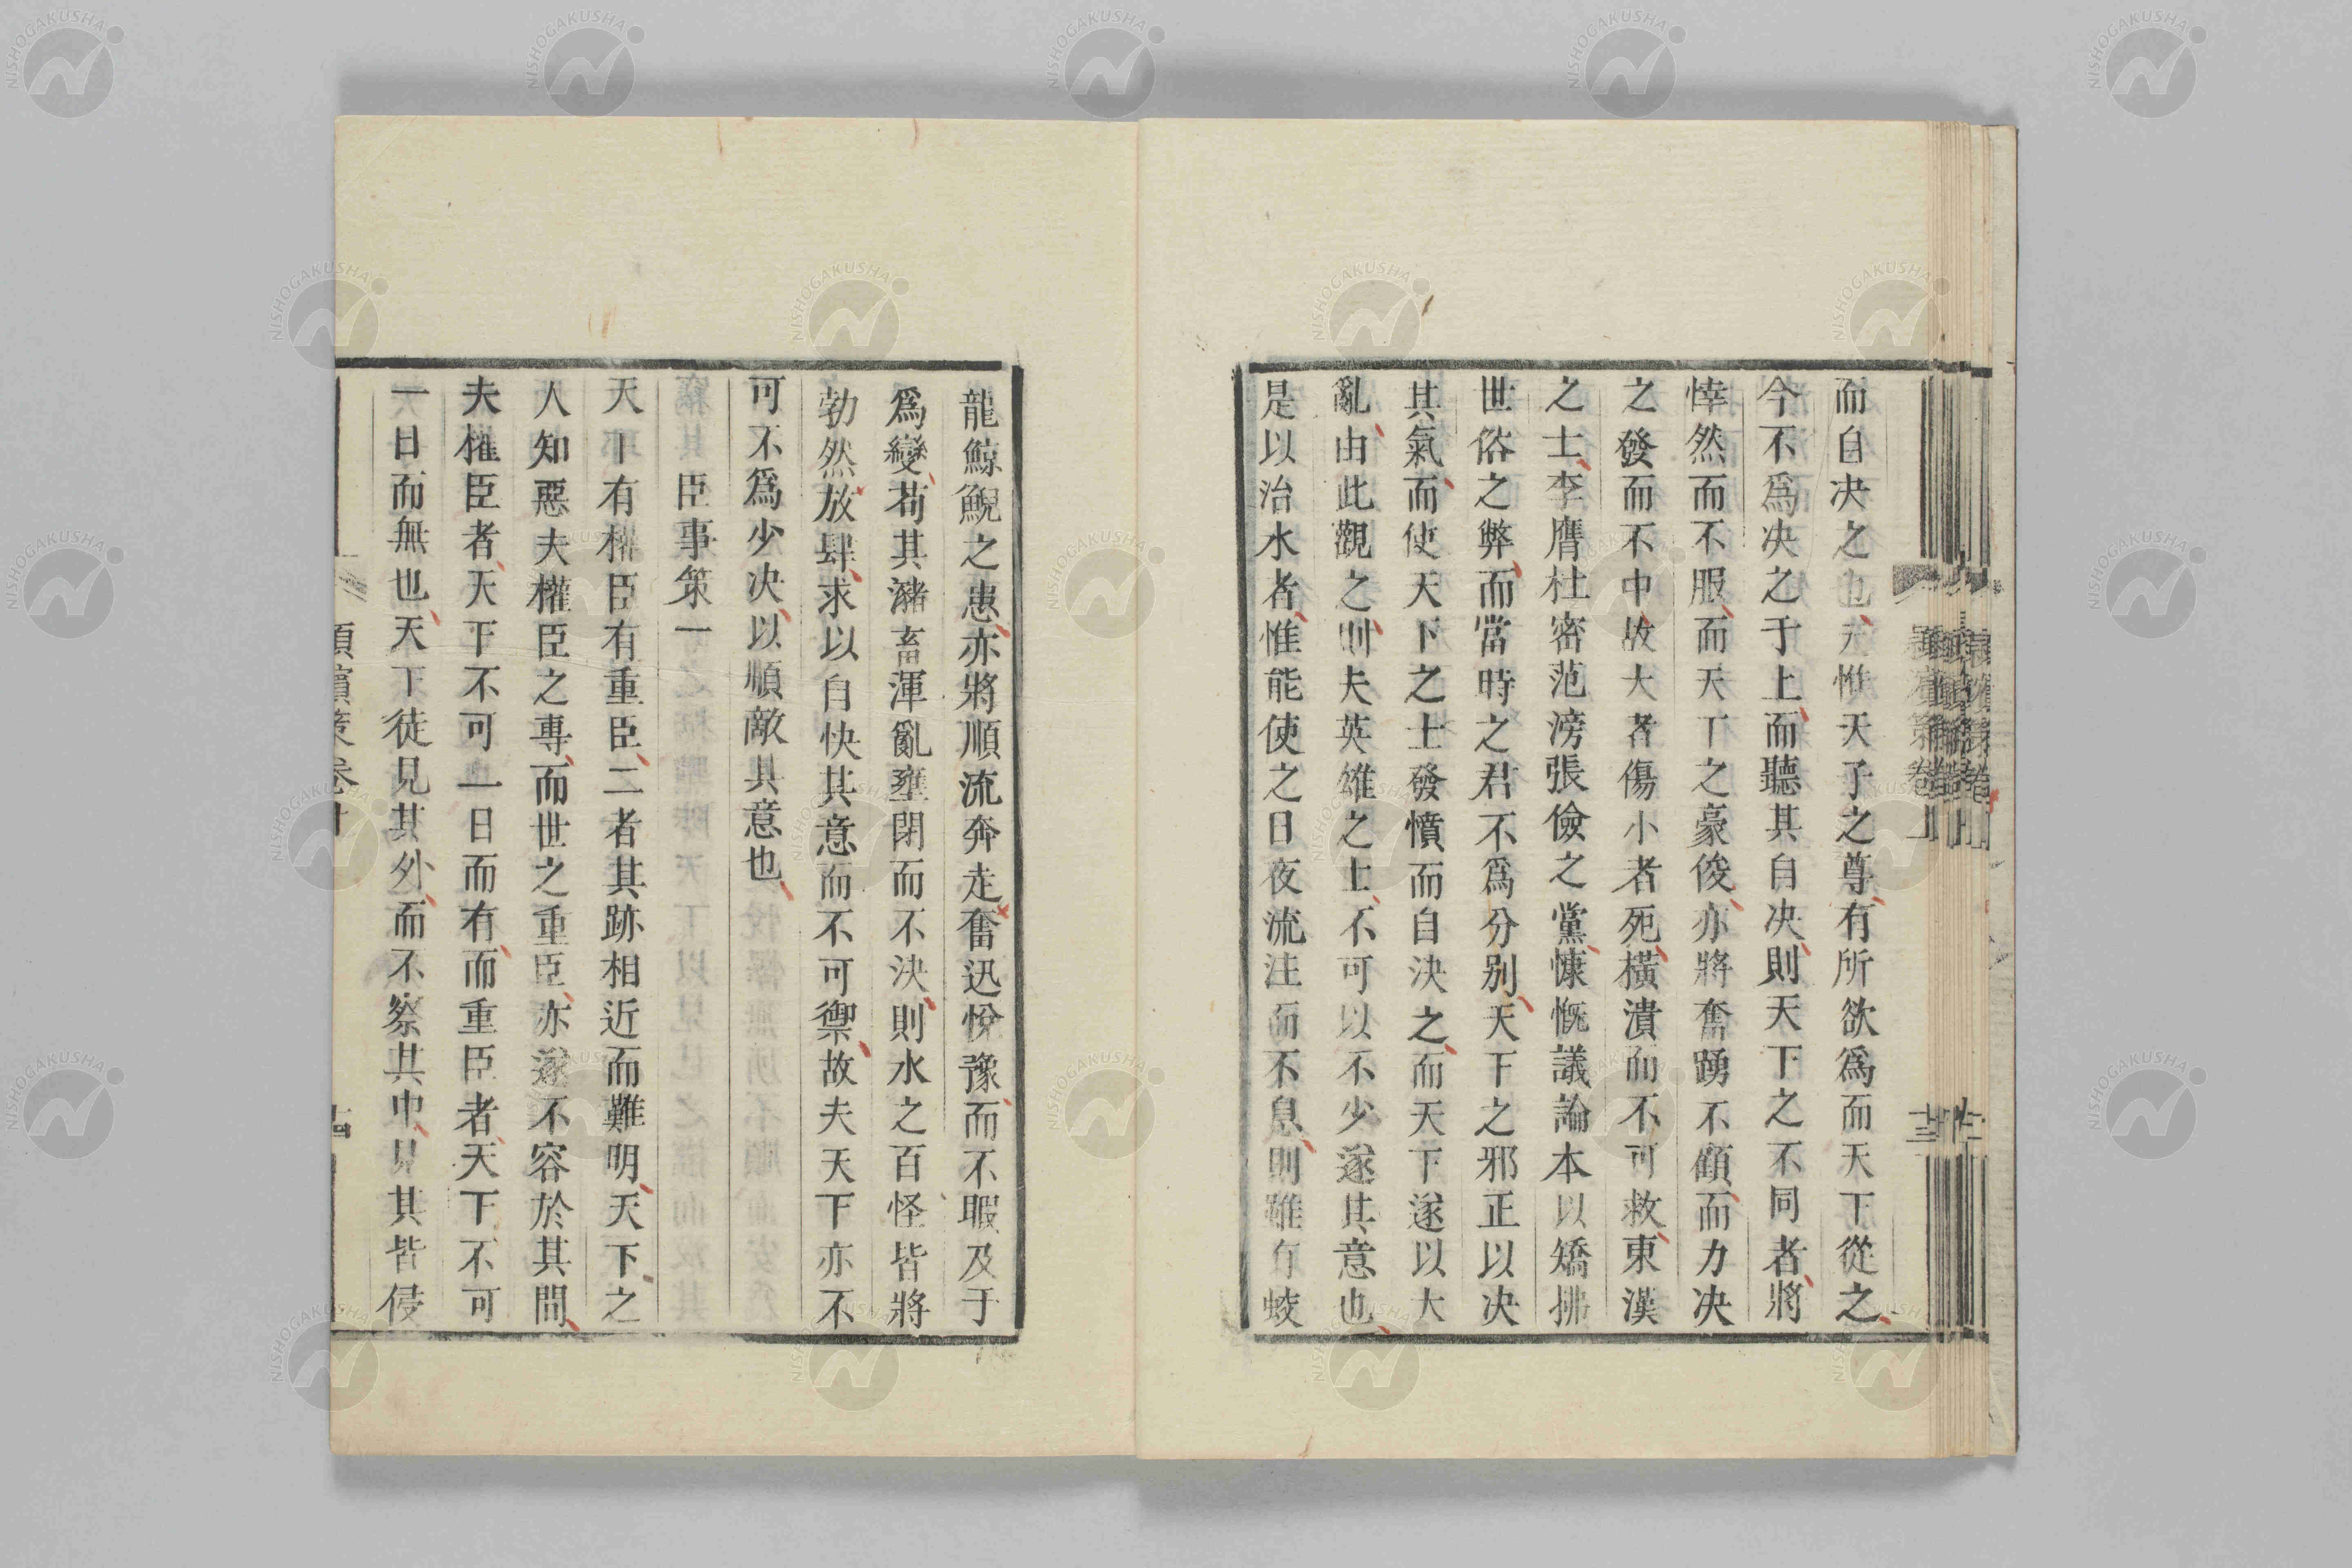 而自决之也夫惟天子之尊有所欲爲而天下從之
今不爲决之于上而聽其自决則天下之不同者將
悻然而不服而天下之豪俊亦將奮踴不顧而力决
之發而不中故大者傷小者死橫潰而不可救東漢
之士李膺杜密范滂張儉之黨慷慨議論本以矯拂
世俗之弊而當時之君不爲分别天下之邪正以决
其氣而使天下之士發憤而自决之而天下遂以大
亂由此觀之則夫英雄之士不可以不少遂其意也
是以治水者惟能使之日夜流注而不息則雖有蛟
龍鯨鯢之患亦將順流奔走奮迅悅豫而不暇及于
爲變苟其瀦畜渾亂壅閉而不决則水之百怪皆將
勃然放肆求以自快其意而不可禦故夫天下亦不
可不爲少决以順敵其意也
臣事策一
天下有權臣有重臣二者其跡相近而難明天下之
人知惡夫權臣之專而世之重臣亦遂不容於其間
夫權臣者天下不可一日而有而重臣者天下不可
一日而無也天下徒見其外而不察其中見其皆侵
潁濱策卷十
十四
NISHOGAKUSHA